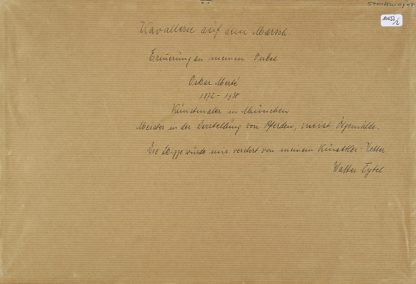 Kavallerie auf dem Marsch.
Erinnerung an meinen Onkel
Oskar Merté
1872 - 1938
Kunstmaler in München
Meister in der Darstellung von Pferden, meist Ölgemälde.
Die Skizze wurde mir verehrt von meinem Künstler-
Walter Eytel